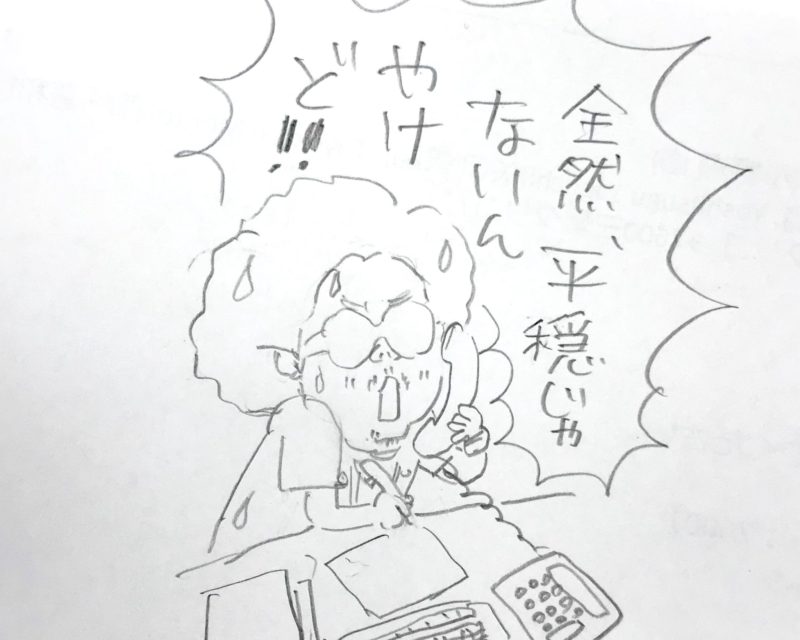 全然、平穏じゃ
ないん
やけ
ど!!